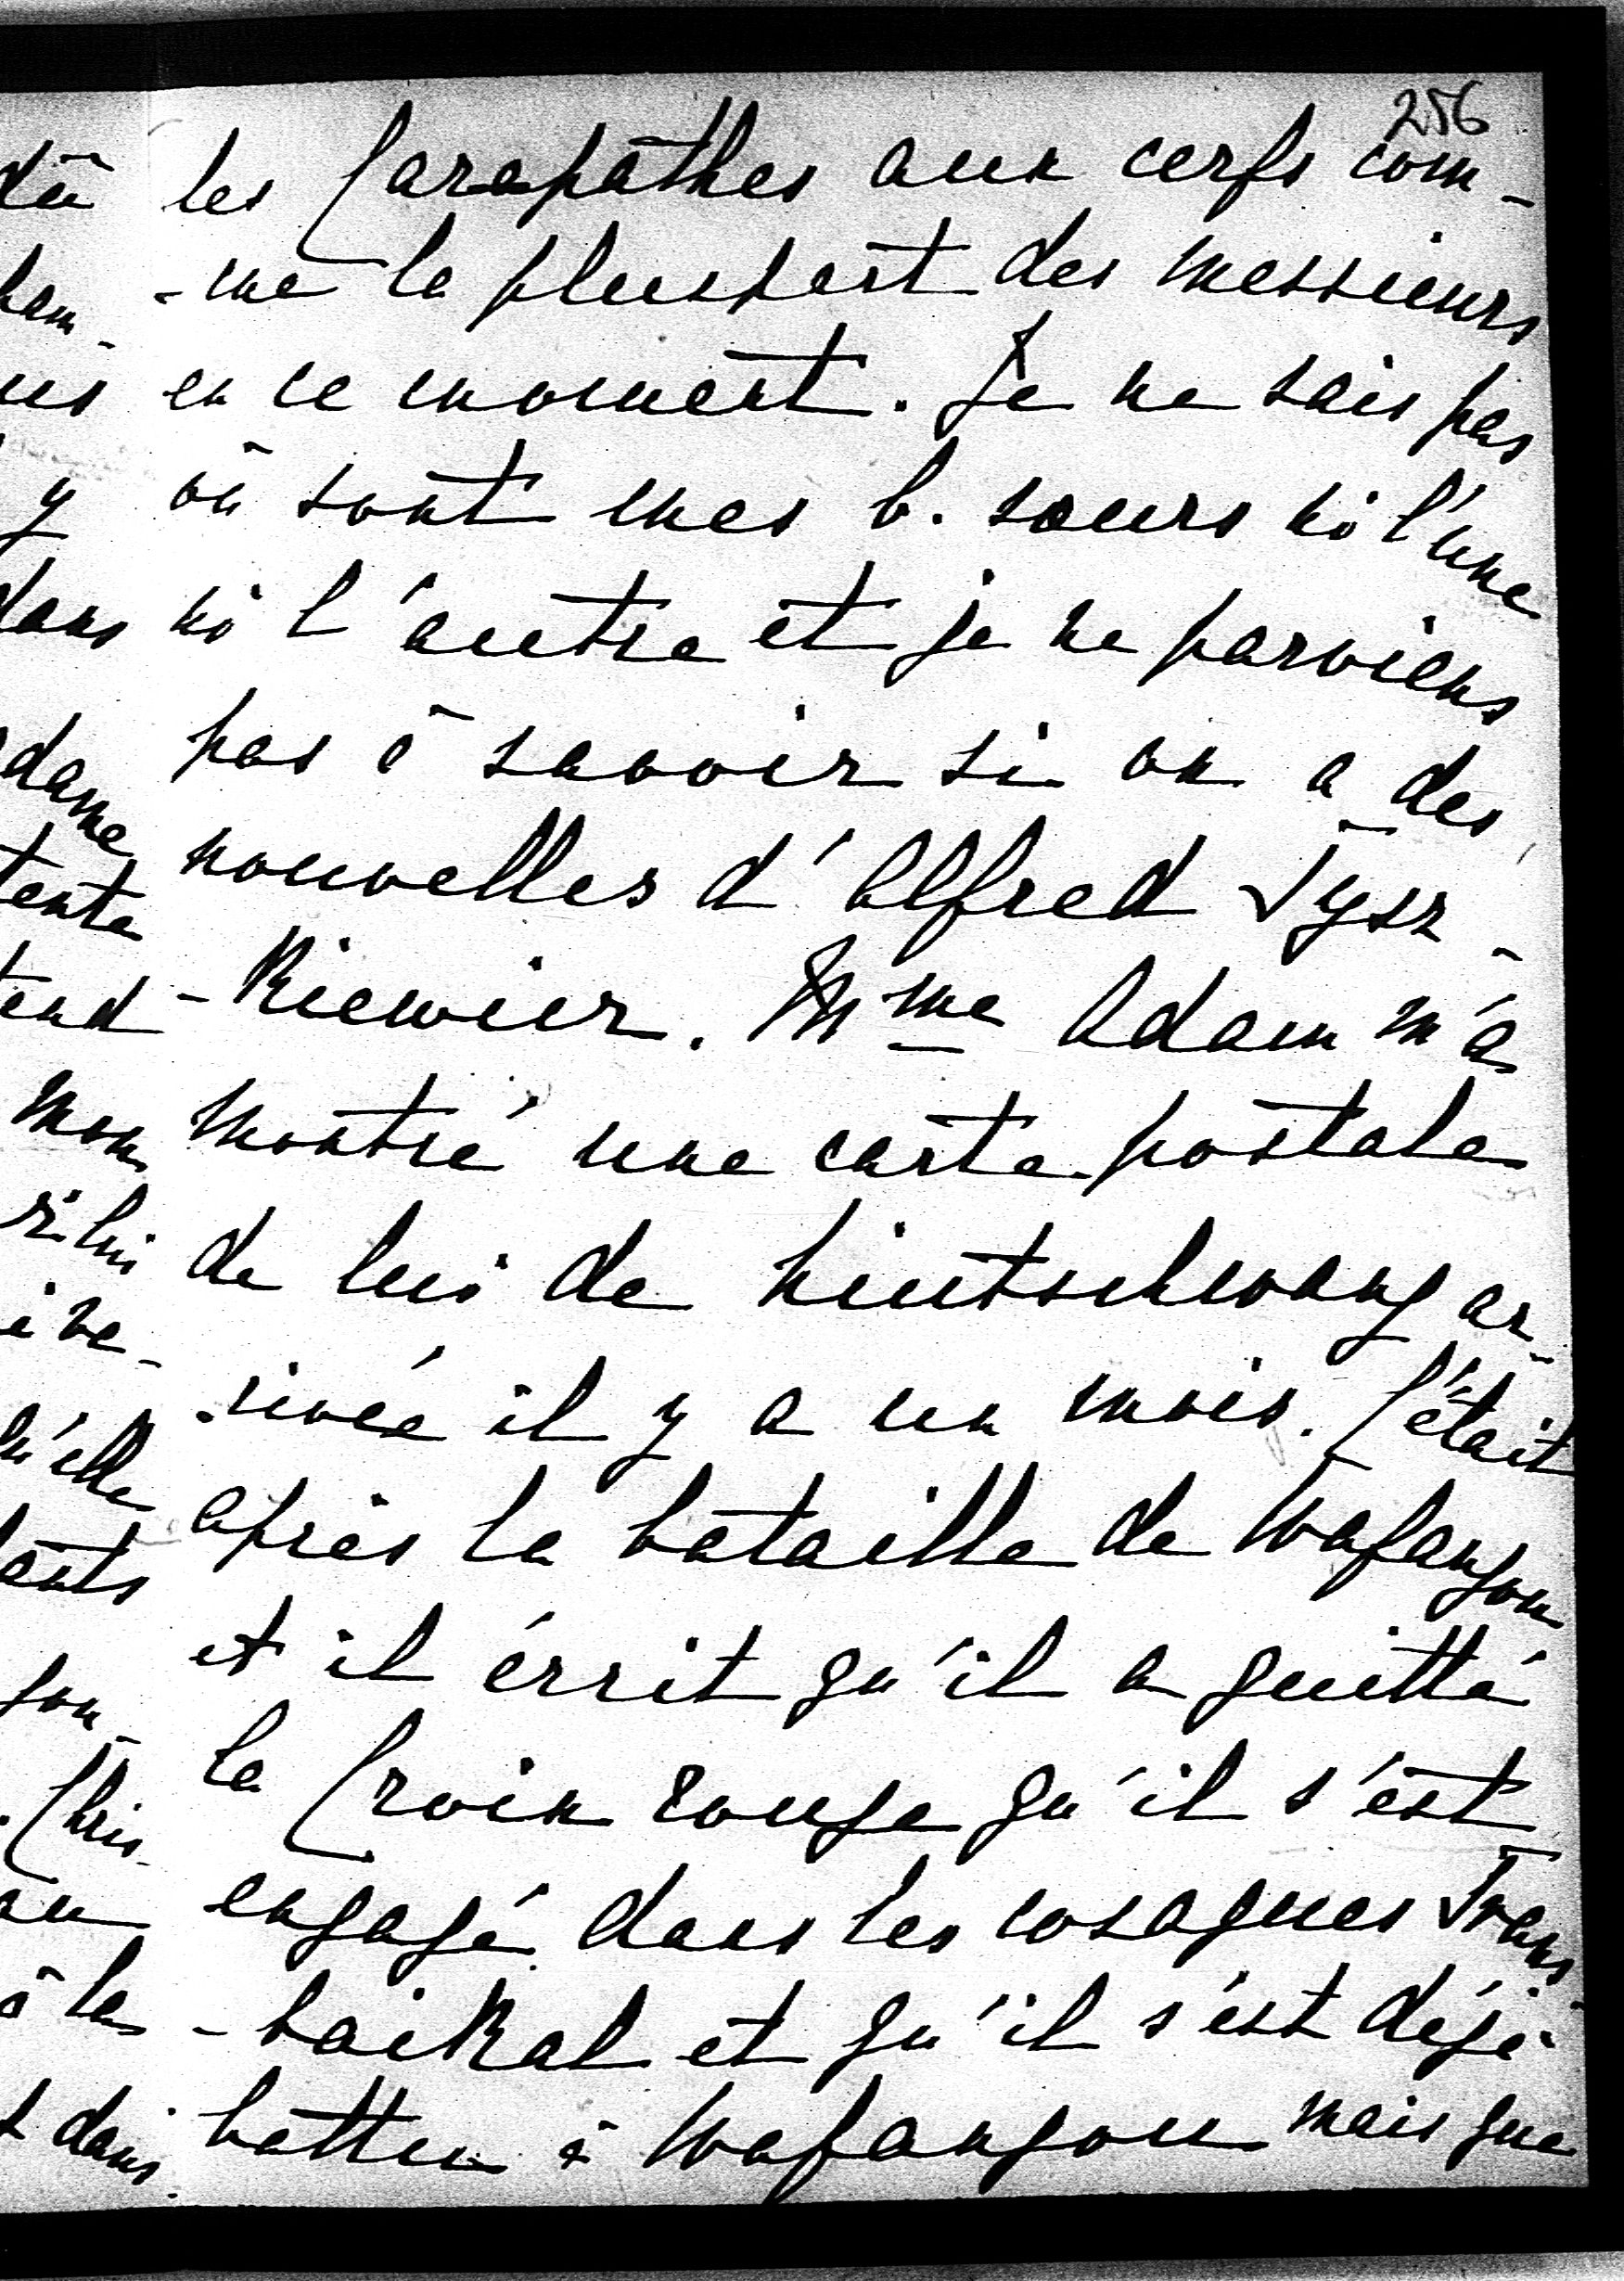 256
les Carapathes aux cerfs com-
-me la pluspart des messieurs
en ce moment. Je ne sais pas
où sont mes b. sœurs ni l'une
ni l'autre et je ne parviens
pas à savoir si on a des
nouvelles d'Alfred Tysz-
-Kiewicz. Mme Adam m'a
montré une carte postale
de lui de hintschwang ar-
-rivée il y a un mois. C'était
après la bataille de Wafangou
et il écrit qu'il a quitté
la Croix rouge qu'il s'est
engagé dans les cosaques Trans-
-baikal et qu'il s'est déjà
battu à Wafangou mais que